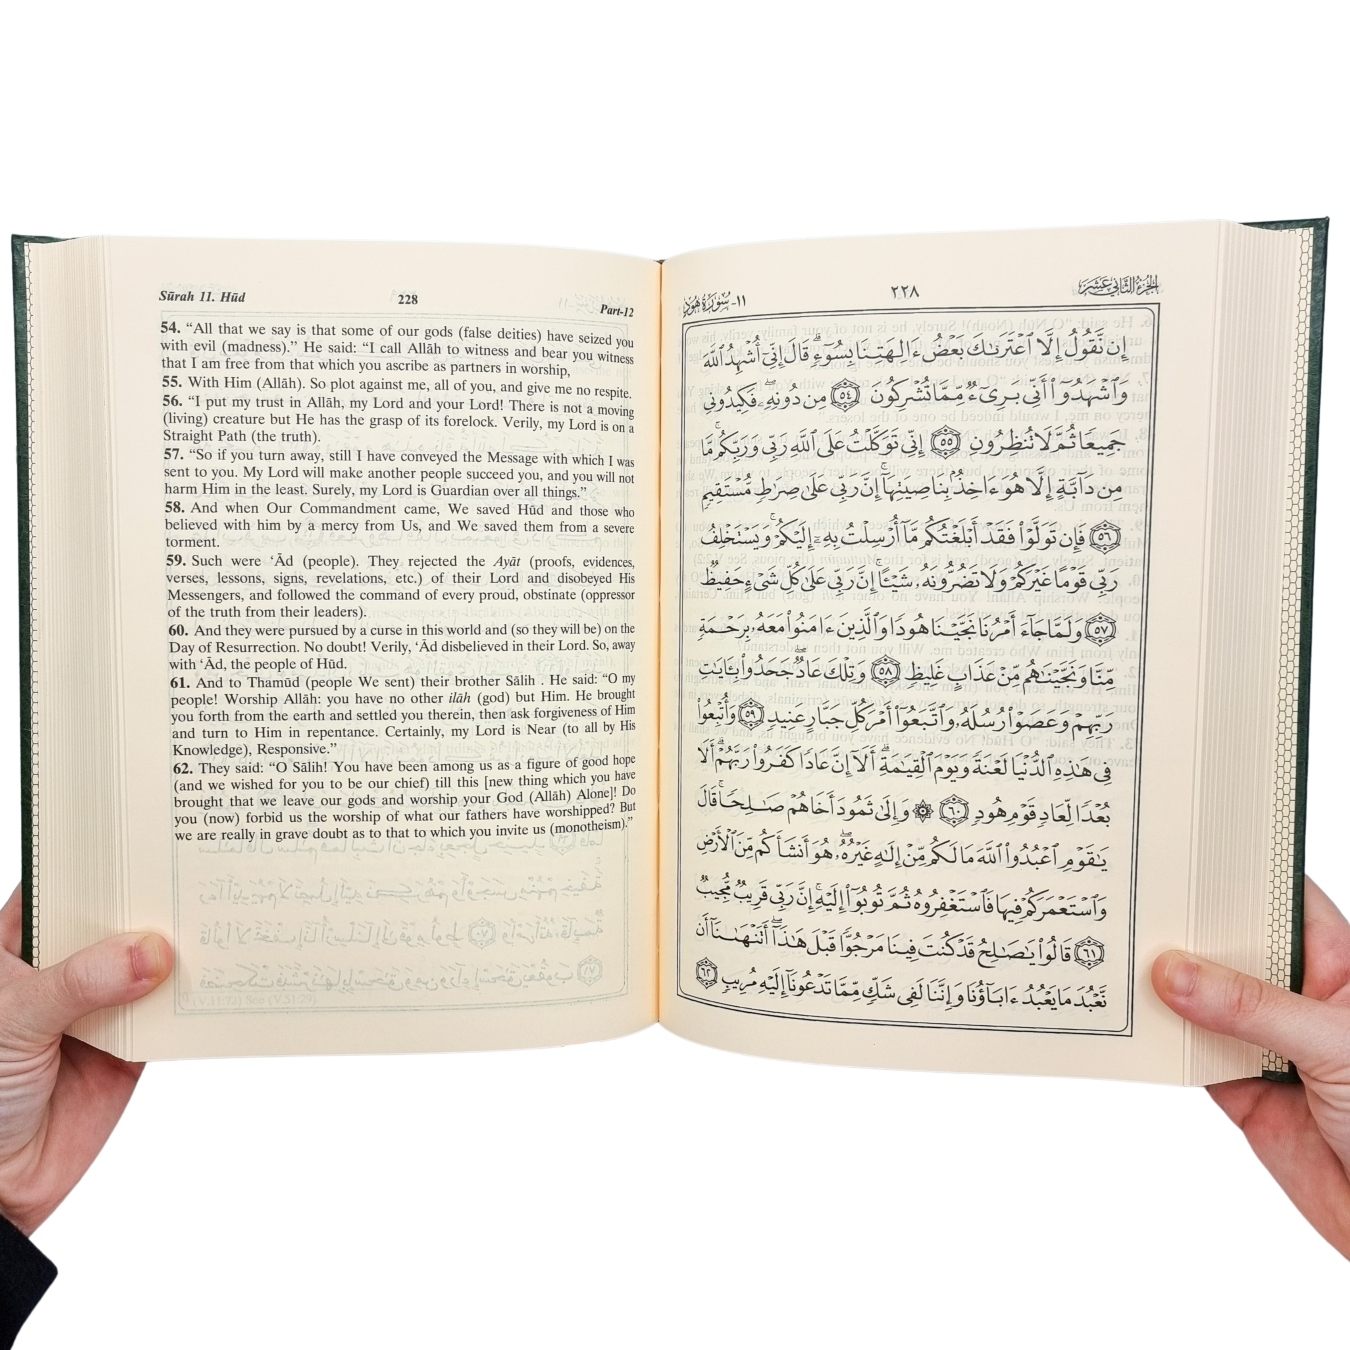 Sūrah 11. Hūd 228 Part-12
54. “All that we say is that some of our gods (false deities) have seized you
with evil (madness).” He said: “I call Allāh to witness and bear you witness
that I am free from that which you ascribe as partners in worship,
55. With Him (Allāh). So plot against me, all of you, and give me no respite.
56. “I put my trust in Allāh, my Lord and your Lord! There is not a moving
(living) creature but He has the grasp of its forelock. Verily, my Lord is on a
Straight Path (the truth).
57. “So if you turn away, still I have conveyed the Message with which I was
sent to you. My Lord will make another people succeed you, and you will not
harm Him in the least. Surely, my Lord is Guardian over all things.”
58. And when Our Commandment came, We saved Hūd and those who
believed with him by a mercy from Us, and We saved them from a severe
torment.
59. Such were ‘Ād (people). They rejected the Ayāt (proofs, evidences,
verses, lessons, signs, revelations, etc.) of their Lord and disobeyed His
Messengers, and followed the command of every proud, obstinate (oppressor
of the truth from their leaders).
60. And they were pursued by a curse in this world and (so they will be) on the
Day of Resurrection. No doubt! Verily, ‘Ād disbelieved in their Lord. So, away
with ‘Ād, the people of Hūd.
61. And to Thamūd (people We sent) their brother Sālih . He said: “O my
people! Worship Allāh: you have no other ilāh (god) but Him. He brought
you forth from the earth and settled you therein, then ask forgiveness of Him
and turn to Him in repentance. Certainly, my Lord is Near (to all by His
Knowledge), Responsive.”
62. They said: “O Sālih! You have been among us as a figure of good hope
(and we wished for you to be our chief) till this [new thing which you have
brought that we leave our gods and worship your God (Allāh) Alone]! Do
you (now) forbid us the worship of what our fathers have worshipped? But
we are really in grave doubt as to that to which you invite us (monotheism).”
الجزء الثاني عشر ٢٢٨ ١١- سورة هود
إِن نَّقُولُ إِلَّا ٱعْتَرَىٰكَ بَعْضُ ءَالِهَتِنَا بِسُوٓءٍ ۗ قَالَ إِنِّىٓ أُشْهِدُ ٱللَّهَ
وَٱشْهَدُوٓا۟ أَنِّى بَرِىٓءٌ مِّمَّا تُشْرِكُونَ ٥٤ مِن دُونِهِۦ ۖ فَكِيدُونِى
جَمِيعًا ثُمَّ لَا تُنظِرُونِ ٥٥ إِنِّى تَوَكَّلْتُ عَلَى ٱللَّهِ رَبِّى وَرَبِّكُم ۚ مَّا
مِن دَآبَّةٍ إِلَّا هُوَ ءَاخِذٌۢ بِنَاصِيَتِهَآ ۚ إِنَّ رَبِّى عَلَىٰ صِرَٰطٍ مُّسْتَقِيمٍ
٥٦ فَإِن تَوَلَّوْا۟ فَقَدْ أَبْلَغْتُكُم مَّآ أُرْسِلْتُ بِهِۦٓ إِلَيْكُمْ ۚ وَيَسْتَخْلِفُ
رَبِّى قَوْمًا غَيْرَكُمْ وَلَا تَضُرُّونَهُۥ شَيْـًٔا ۚ إِنَّ رَبِّى عَلَىٰ كُلِّ شَىْءٍ حَفِيظٌ
٥٧ وَلَمَّا جَآءَ أَمْرُنَا نَجَّيْنَا هُودًا وَٱلَّذِينَ ءَامَنُوا۟ مَعَهُۥ بِرَحْمَةٍ
مِّنَّا وَنَجَّيْنَٰهُم مِّنْ عَذَابٍ غَلِيظٍ ٥٨ وَتِلْكَ عَادٌ ۖ جَحَدُوا۟ بِـَٔايَٰتِ
رَبِّهِمْ وَعَصَوْا۟ رُسُلَهُۥ وَٱتَّبَعُوٓا۟ أَمْرَ كُلِّ جَبَّارٍ عَنِيدٍ ٥٩ وَأُتْبِعُوا۟
فِى هَٰذِهِ ٱلدُّنْيَا لَعْنَةً وَيَوْمَ ٱلْقِيَٰمَةِ ۗ أَلَآ إِنَّ عَادًا كَفَرُوا۟ رَبَّهُمْ ۗ أَلَا
بُعْدًا لِّعَادٍ قَوْمِ هُودٍ ٦٠ ۞ وَإِلَىٰ ثَمُودَ أَخَاهُمْ صَٰلِحًا ۚ قَالَ
يَٰقَوْمِ ٱعْبُدُوا۟ ٱللَّهَ مَا لَكُم مِّنْ إِلَٰهٍ غَيْرُهُۥ ۖ هُوَ أَنشَأَكُم مِّنَ ٱلْأَرْضِ
وَٱسْتَعْمَرَكُمْ فِيهَا فَٱسْتَغْفِرُوهُ ثُمَّ تُوبُوٓا۟ إِلَيْهِ ۚ إِنَّ رَبِّى قَرِيبٌ مُّجِيبٌ
٦١ قَالُوا۟ يَٰصَٰلِحُ قَدْ كُنتَ فِينَا مَرْجُوًّا قَبْلَ هَٰذَآ ۖ أَتَنْهَىٰنَآ أَن
نَّعْبُدَ مَا يَعْبُدُ ءَابَآؤُنَا وَإِنَّنَا لَفِى شَكٍّ مِّمَّا تَدْعُونَآ إِلَيْهِ مُرِيبٍ ٦٢